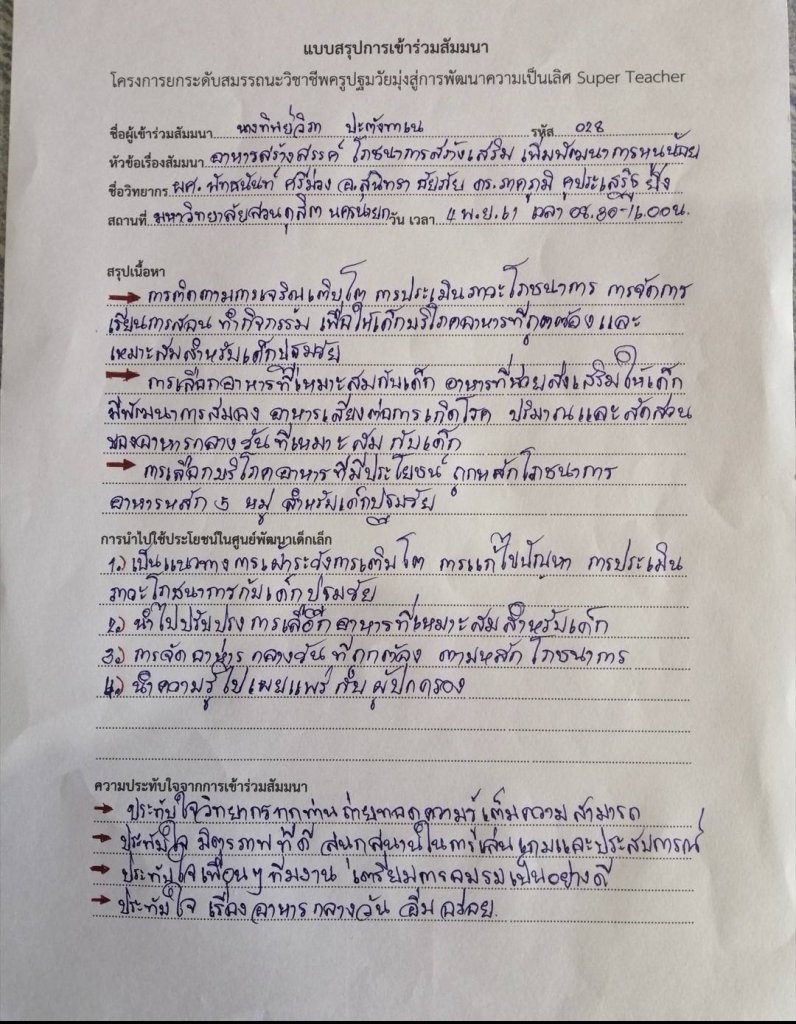 แบบสรุปการเข้าร่วมสัมมนา
โครงการยกระดับสมรรถนะวิชาชีพครูปฐมวัยมุ่งสู่การพัฒนาความเป็นเลิศ Super Teacher
ชื่อผู้เข้าร่วมสัมมนา นางทิพย์วิภา รหัส 028
หัวข้อเรื่องสัมมนา อาหารสร้างสรรค์ โภชนาการสร้างเสริม เพิ่มพัฒนาการหนูน้อย
ชื่อวิทยากร ผศ. พัทธนันท์ ศรีม่วง อ.สุนิทรา ดร.ภาคภูมิ
สถานที่ มหาวิทยาลัยสวนดุสิต นครนายก วัน เวลา 4 พ.ย. 61 เวลา 08.30-16.00น.
สรุปเนื้อหา
→ การติดตามการเจริญเติบโต การประเมินภาวะโภชนาการ การจัดการ
เรียนการสอน ทำกิจกรรม เพื่อให้เด็กบริโภคอาหารที่ถูกต้อง และ
เหมาะสมสำหรับเด็กปฐมวัย
→ การเลือกอาหารที่เหมาะสมกับเด็ก อาหารที่ช่วยส่งเสริมให้เด็ก
มีพัฒนาการสมอง อาหารเสี่ยงต่อการเกิดโรค ปริมาณและสัดส่วน
ของอาหารกลางวันที่เหมาะสมกับเด็ก
→ การเลือกบริโภคอาหารที่มีประโยชน์ ถูกหลักโภชนาการ
อาหารหลัก ๕ หมู่ สำหรับเด็กปฐมวัย
การนำไปใช้ประโยชน์ในศูนย์พัฒนาเด็กเล็ก
1.) เป็นแนวทางการเฝ้าระวังการเติบโต การแก้ไขปัญหา การประเมิน
ภาวะโภชนาการกับเด็กปฐมวัย
2.) นำไปปรับปรุงการเลือกอาหารที่เหมาะสมสำหรับเด็ก
3.) การจัดอาหารกลางวันที่ถูกต้อง ตามหลักโภชนาการ
4.) นำความรู้ไปเผยแพร่กับผู้ปกครอง
ความประทับใจจากการเข้าร่วมสัมมนา
→ ประทับใจวิทยากรทุกท่านถ่ายทอดความรู้เต็มความสามารถ
→ ประทับใจ มิตรภาพที่ดี สนุกสนานในการเล่นเกมและประสบการณ์
→ ประทับใจเพื่อนๆ ทีมงาน เตรียมการอบรมเป็นอย่างดี
→ ประทับใจ เรื่องอาหารกลางวัน อิ่มอร่อย.